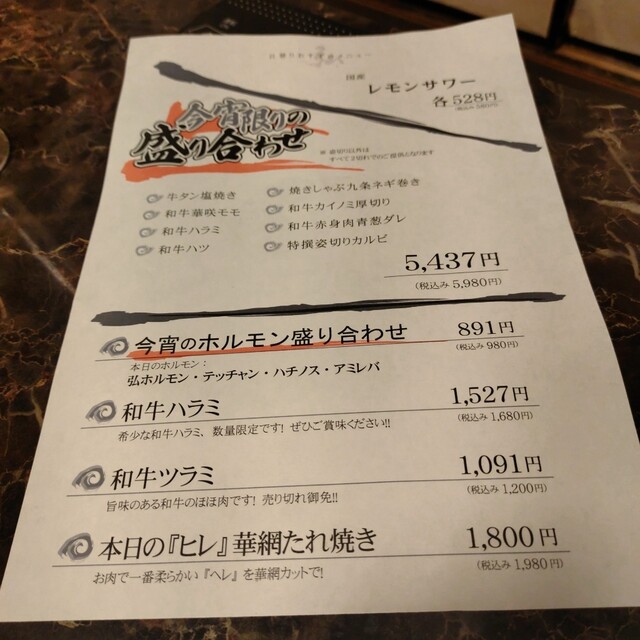 国産 レモンサワー
各528円
今宵限りの
盛り合わせ
すべて2切れでのご提供となります
牛タン塩焼き
和牛華咲モモ
和牛ハラミ
和牛ハツ
焼きしゃぶ九条ネギ巻き
和牛カイノミ厚切り
和牛赤身肉青葱ダレ
特撰姿切りカルビ
5,437円
(税込み 5,980円)
今宵のホルモン盛り合わせ 891円
(税込み 980円)
本日のホルモン:
弘ホルモン・テッチャン・ハチノス・アミレバ
和牛ハラミ 1,527円
(税込み 1,680円)
希少な和牛ハラミ、数量限定です! ぜひご賞味ください!!
和牛ツラミ 1,091円
(税込み 1,200円)
旨味のある和牛のほほ肉です! 売り切れ御免!!
本日の『ヒレ』華網たれ焼き 1,800円
(税込み 1,980円)
お肉で一番柔らかい『ヘレ』を華網カットで!